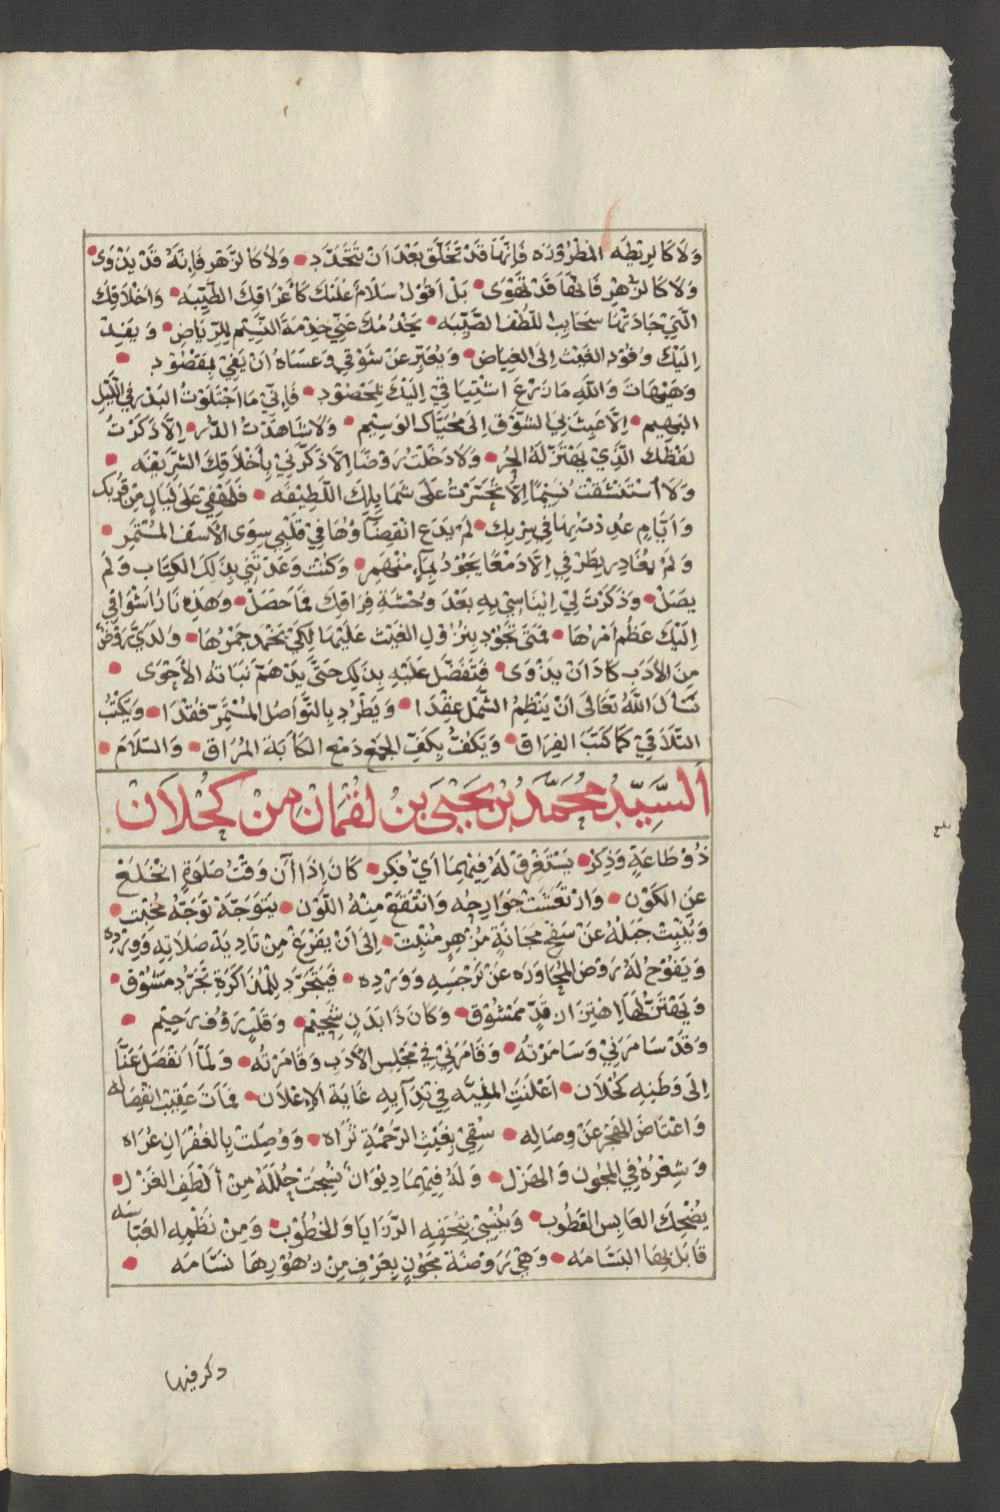 وَلَا كَالرِيْطَه المَطْرُوْزَه فَاِنَّهَا قَدْ تَخْلَقُ بَعْدَ اَنْ تَتَجَدَّد • وَلَا كَالزَّهْرِ فَاِنَّهُ قَدْ يَذْوَى •
وَلَا كَالزُّهْرِ فَانَّهَا قَدْ تَهْوَى • بَلْ اَقُوْلُ سَلَامٌ عَلَيْكَ كَاَعْرَاقِكَ الطَّيِّبَه • وَاَخْلَاقِكَ
الَّتِيْ جَادَتْهَا سَحَايِبُ اللُّطْفِ الصَّيِّبَه • يَخْدُمُكَ عَنِّيْ خِدْمَةَ النَّسِيْمِ لِلرِّيَاض • وَيَفِدُ
اِلَيْكَ وُفُوْدَ الغَيْثِ اِلَى الغِيَاض • وَيُعَبِّرُ عَنْ شَوْقِيْ وَعَسَاهُ اَنْ يَفِيْ بِمَقْصُوْدِ •
وَهَيْهَاتَ وَاللهِ مَا نَزْعُ اشْتِيَاقِيْ اِلَيْكَ بِمَحْصُوْدِ • فَاِنِّيْ مَا اجْتَلَوْتُ البَدْرَ فِي اللَّيْلِ
البَهِيْم • اِلَّا عَبِثَ بِيَ الشَّوْقُ اِلَى مُحَيَّاكَ الوَسِيْم • وَلَا شَاهَدْتُ الدُّرَّ • اِلَّا ذَكَرْتُ
لَفْظَكَ الَّذِي يَهْتَزُّ لَهُ الحُرُّ • وَلَا دَخَلْتُ رَوْضًا اِلَّا ذَكَّرَنِيْ بِأَخْلَاقِكَ الشَّرِيْفَه •
وَلَا اسْتَنْشَقْتُ نَسِيْمًا اِلَّا تَحَسَّرْتُ عَلَى شَمَايِلِكَ اللَّطِيْفَه • فَلَهْفِيْ عَلَى لَيَالٍ مِنْ قُرْبِكَ
وَاَيَّامٍ عُدِدْتُ بِهَا فِيْ حِزْبِكَ • لَمْ يَدَعِ انْقِضَآؤُهَا فِيْ قَلْبِيْ سِوَى الأَسَفِ المُسْتَمِرّ •
وَلَمْ يُغَادِرْ بِطَرْفِي اِلَّا دَمْعًا يَجُوْدُ بِمَآءٍ مُنْهَمِر • وَكُنْتَ وَعَدْتَنِيْ بِذَلِكَ الكِتَابِ وَلَمْ
يَصِلْ • وَذَكَرْتَ لِيْ اِيْنَاسِيْ بِهِ بَعْدَ وَحْشَةِ فِرَاقِكَ فَمَا حَصَلْ • وَهَذِهِ نَارُ اَشْوَاقِي
اِلَيْكَ عَظُمَ اَمْرُهَا • فَمَتَى تَجُوْد بِنُزُوْلِ الغَيْثِ عَلَيْهَا لِكَيْ يَخْمَدَ جَمْرُهَا • وَلَدَيَّ رَوْضٌ
مِنَ الأَدَبِ كَادَ اَنْ يَذْوَى • فَتَفَضَّلْ عَلَيْهِ بِذَلِكَ حَتَّى يَدْهَمَّ نَبَاتُهُ الأَحْوَى •
نَسْأَلُ اللهَ تَعَالَى اَنْ يَنْظِمَ الشَّمْلَ عِقْدَا • وَيَطْرُدَ بِالتَّوَاصُلِ المُسْتَمِرِّ فَقْدَا • وَيَكْتُبَ
التَّلَاقِيْ كَمَا كَتَبَ الفِرَاق • وَيَكُفَّ بِكَفِّ الجَمْعِ دَمْعَ الكَآبَةِ المُرَاق • وَالسَّلَام •
اَلسَّيِّدُ مُحَمَّدُ بْنُ يَحْيَى بْنِ لُقْمَانْ مِنْ كُحْلَانْ
ذُوْ طَاعَةٍ وَذِكْر • يَسْتَغْرِقُ لَهُ فِيْهِمَا اَيُّ فِكْر • كَانَ اِذَا آنَ وَقْتُ صَلَوةٍ انْخَلَعَ
عَنِ الكَوْن • وَارْتَعَشَتْ جَوَارِحُه وَانْتَقَعَ مِنْهُ اللَّوْن • يَتَوَجَّهُ تَوَجُّهَ مُخْبِت •
وَيُنْبِتُ حَبْلَهُ عَنْ سَفْحِ مَجَانَةٍ مُزْهِرٍ مُنْبِت • اِلَى اَنْ يَفْرَغَ مِنْ تَادِيَةِ صَلَاتِهِ وَوِرْدِه
وَيَفُوْحُ لَهُ رَوْضُ المُحَاوَرَه عَنْ نَرْجِسِهِ وَوَرْدِه • فَيَتَجَرَّدُ لِلْمُذَاكَرَةِ تَجَرُّدَ مَشُوْق •
وَيَهْتَزُّ لَهَا اهْتِزَازَ قَدٍّ مَمْشُوْق • وَكَانَ ذَا بَدَنٍ شَحِيْم • وَقَلْبٍ رَؤُفٍ رَحِيْم •
وَقَدْ سَامَرَنِيْ وَسَامَرْتُه • وَقَامَرَنِيْ فِيْ مَجْلِسِ الأَدَبِ وَقَامَرْتُه • وَلَمَّا انْفَصَلَ عَنَّا
اِلَى وَطَنِهِ كُحْلَان • اَعْلَنَتِ المَنِيَّه فِيْ نِدَآيِهِ غَايَةَ الإِعْلَان • فَمَاتَ عَقِيْبَ انْفِصَالِه
وَاعْتَاضَ الهَجْرَ عَنْ وِصَالِه • سُقِيَ بِغَيْثِ الرَّحْمَةِ ثَرَاه • وَوُصِلَتْ بِالغُفْرَانِ عُرَاه
وَشِعْرُهُ فِي المُجُوْن وَالهَزْل • وَلَهُ فِيْهِمَا دِيْوَانٌ نُسِجَتْ حُلَلُهُ مِنْ أَلْطَفِ الغَزْل •
يُضْحِكُ العَابِسَ القَطُوْب • وَيُنْسِيْ بِتُحَفِهِ الرَّزَايَا وَالخُطُوْب • وَمِنْ نَظْمِهِ العَبَّاسَه
قَابَلَ بِهَا البَسَّامَه • وَهْيَ رَوْضَةُ مُجُوْنٍ بِعَرْفٍ مِنْ زُهُوْرِهَا نَسَّامَه •
ذكر فيها